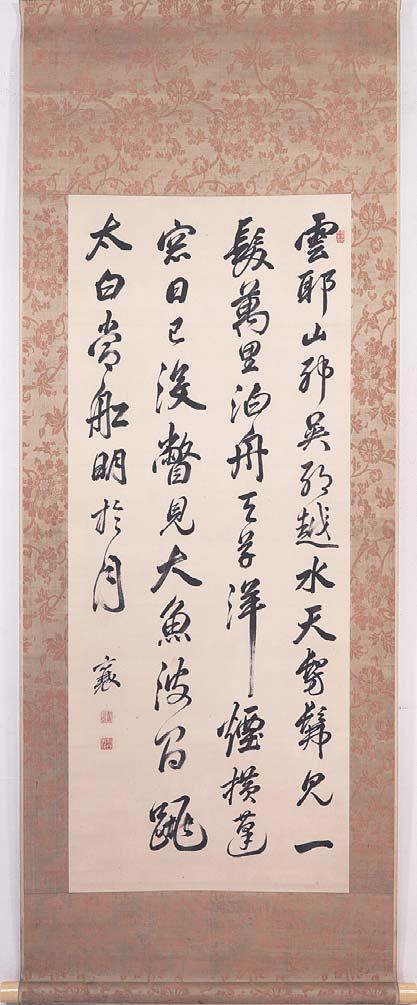 雲耶山耶吳耶越水天髣髴見一
髮萬里泊舟天草洋煙横蓬
窓日已没瞥見大魚波間跳
太白當船明於月
襄